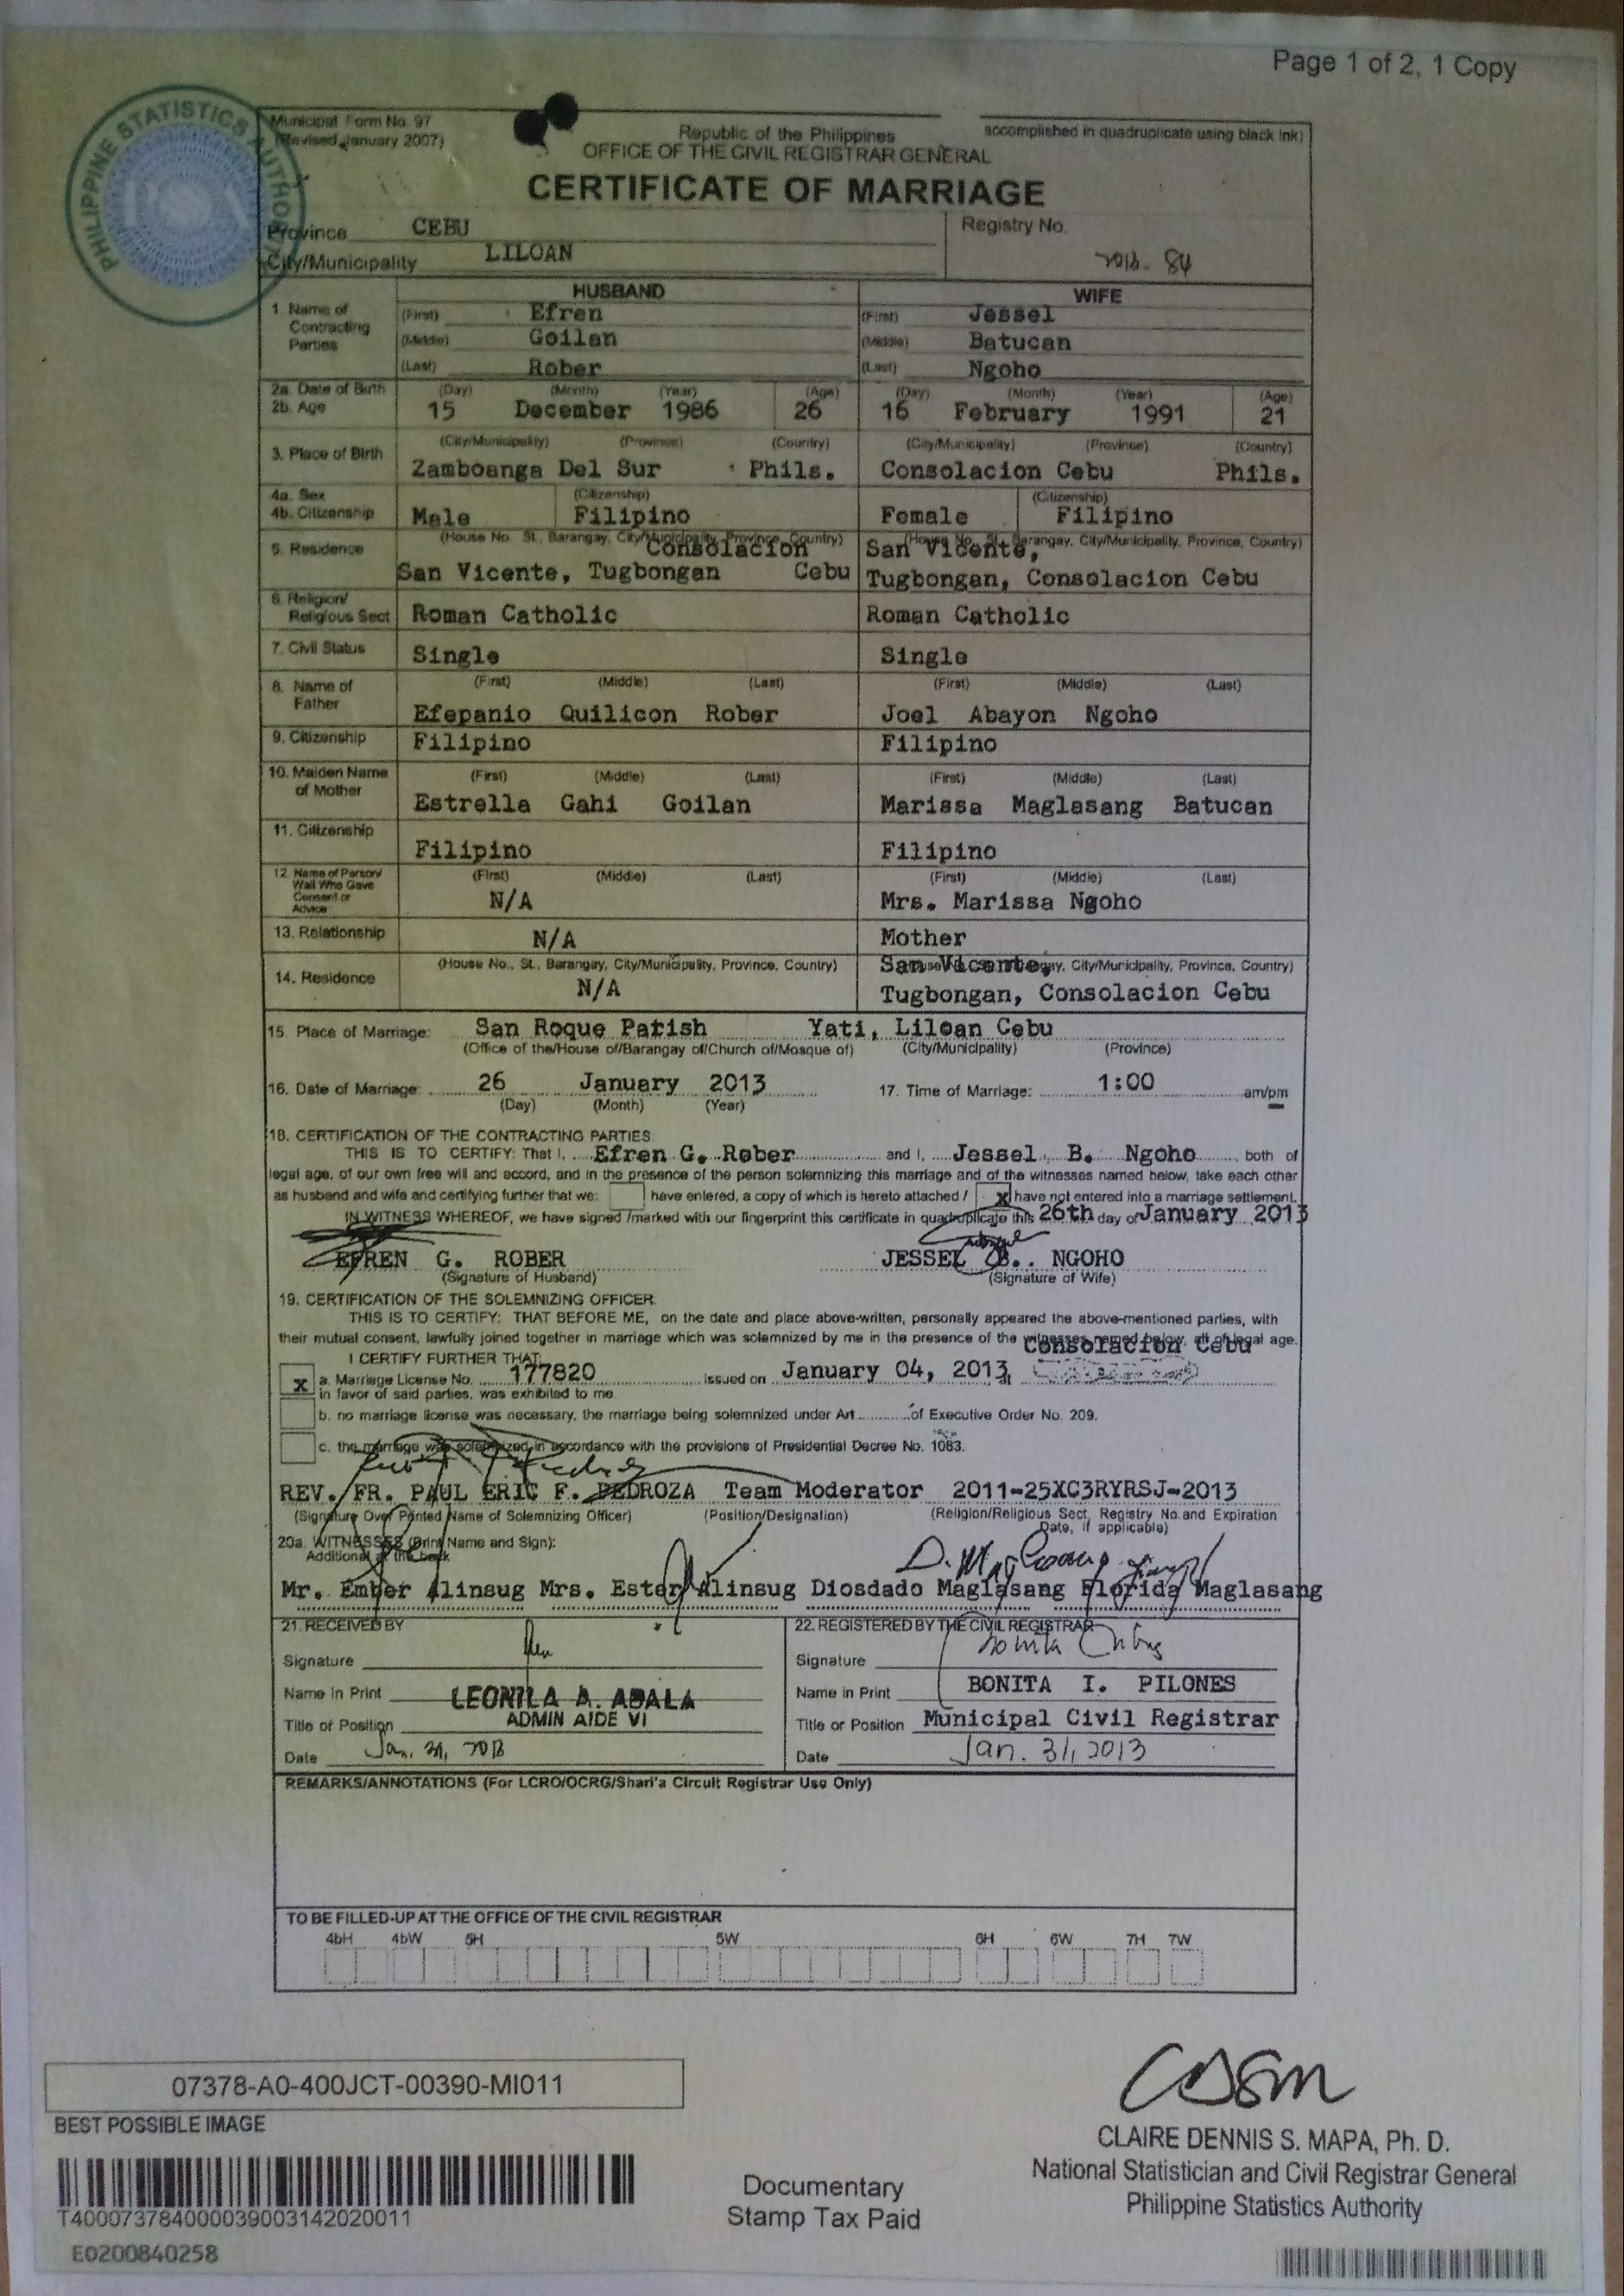 Page 1 of 2, 1 Copy
PHILIPPINE STATISTICS AUTHORITY
Municipal Form No. 97
(Revised January 2007)
Republic of the Philippines
accomplished in quadruplicate using black ink)
OFFICE OF THE CIVIL REGISTRAR GENERAL
CERTIFICATE OF MARRIAGE
Province CEBU
Registry No.
City/Municipality LILOAN
2013-84
HUSBAND WIFE
1. Name of Contracting Parties
(First) Efren (First) Jessel
(Middle) Goilan (Middle) Batucan
(Last) Rober (Last) Ngoho
2a. Date of Birth (Day) (Month) (Year) (Age) (Day) (Month) (Year) (Age)
2b. Age 15 December 1986 26 16 February 1991 21
(City/Municipality) (Province) (Country) (City/Municipality) (Province) (Country)
3. Place of Birth Zamboanga Del Sur Phils. Consolacion Cebu Phils.
4a. Sex (Citizenship) (Citizenship)
4b. Citizenship Male Filipino Female Filipino
(House No. St., Barangay, City/Municipality, Province, Country) (House No. St., Barangay, City/Municipality, Province, Country)
5. Residence Consolacion San Vicente,
San Vicente, Tugbongan Cebu Tugbongan, Consolacion Cebu
6. Religion/
Religious Sect Roman Catholic Roman Catholic
7. Civil Status Single Single
8. Name of Father (First) (Middle) (Last) (First) (Middle) (Last)
Efepanio Quilicon Rober Joel Abayon Ngoho
9. Citizenship Filipino Filipino
10. Maiden Name of Mother (First) (Middle) (Last) (First) (Middle) (Last)
Estrella Gahi Goilan Marissa Maglasang Batucan
11. Citizenship Filipino Filipino
12. Name of Person/ Wali Who Gave Consent or Advice (First) (Middle) (Last) (First) (Middle) (Last)
N/A Mrs. Marissa Ngoho
13. Relationship N/A Mother
14. Residence (House No., St., Barangay, City/Municipality, Province, Country) San Vicente, City/Municipality, Province, Country)
N/A Tugbongan, Consolacion Cebu
15. Place of Marriage: San Roque Parish Yati, Liloan Cebu
(Office of the/House of/Barangay of/Church of/Mosque of) (City/Municipality) (Province)
16. Date of Marriage: 26 January 2013 17. Time of Marriage: 1:00 am/pm
(Day) (Month) (Year)
18. CERTIFICATION OF THE CONTRACTING PARTIES:
THIS IS TO CERTIFY: That I, Efren G. Rober and I, Jessel B. Ngoho both of
legal age, of our own free will and accord, and in the presence of the person solemnizing this marriage and of the witnesses named below, take each other
as husband and wife and certifying further that we: have entered, a copy of which is hereto attached / x have not entered into a marriage settlement.
IN WITNESS WHEREOF, we have signed /marked with our fingerprint this certificate in quadruplicate this 26th day of January 2013
EFREN G. ROBER JESSEL B. NGOHO
(Signature of Husband) (Signature of Wife)
19. CERTIFICATION OF THE SOLEMNIZING OFFICER:
THIS IS TO CERTIFY: THAT BEFORE ME, on the date and place above-written, personally appeared the above-mentioned parties, with
their mutual consent, lawfully joined together in marriage which was solemnized by me in the presence of the witnesses named below, all of legal age.
I CERTIFY FURTHER THAT: Consolacion Cebu
x a. Marriage License No. 177820 issued on January 04, 2013 at
in favor of said parties, was exhibited to me.
b. no marriage license was necessary, the marriage being solemnized under Art. of Executive Order No. 209.
c. the marriage was solemnized in accordance with the provisions of Presidential Decree No. 1083.
REV. FR. PAUL ERIC F. PEDROZA Team Moderator 2011-25XC3RYRSJ-2013
(Signature Over Printed Name of Solemnizing Officer) (Position/Designation) (Religion/Religious Sect, Registry No. and Expiration
Date, if applicable)
20a. WITNESSES (Print Name and Sign):
Additional at the back
Mr. Ember Alinsug Mrs. Ester Alinsug Diosdado Maglasang Florida Maglasang
21. RECEIVED BY 22. REGISTERED BY THE CIVIL REGISTRAR
Signature Signature
Name in Print LEONILA A. ABALA Name in Print BONITA I. PILONES
Title or Position ADMIN AIDE VI Title or Position Municipal Civil Registrar
Date Jan. 31, 2013 Date Jan. 31, 2013
REMARKS/ANNOTATIONS (For LCRO/OCRG/Shari'a Circuit Registrar Use Only)
TO BE FILLED-UP AT THE OFFICE OF THE CIVIL REGISTRAR
4bH 4bW 5H 5W 6H 6W 7H 7W
07378-A0-400JCT-00390-MI011
BEST POSSIBLE IMAGE
CLAIRE DENNIS S. MAPA, Ph. D.
National Statistician and Civil Registrar General
Philippine Statistics Authority
Documentary
Stamp Tax Paid
T400073784000039003142020011
E0200840258